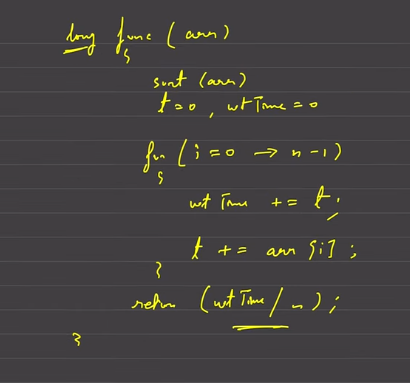 long func (arr)
{
sort (arr)
t=0, wtTime=0
for (i=0 → n-1)
{
wtTime += t;
t += arr[i];
}
return (wtTime/n);
}